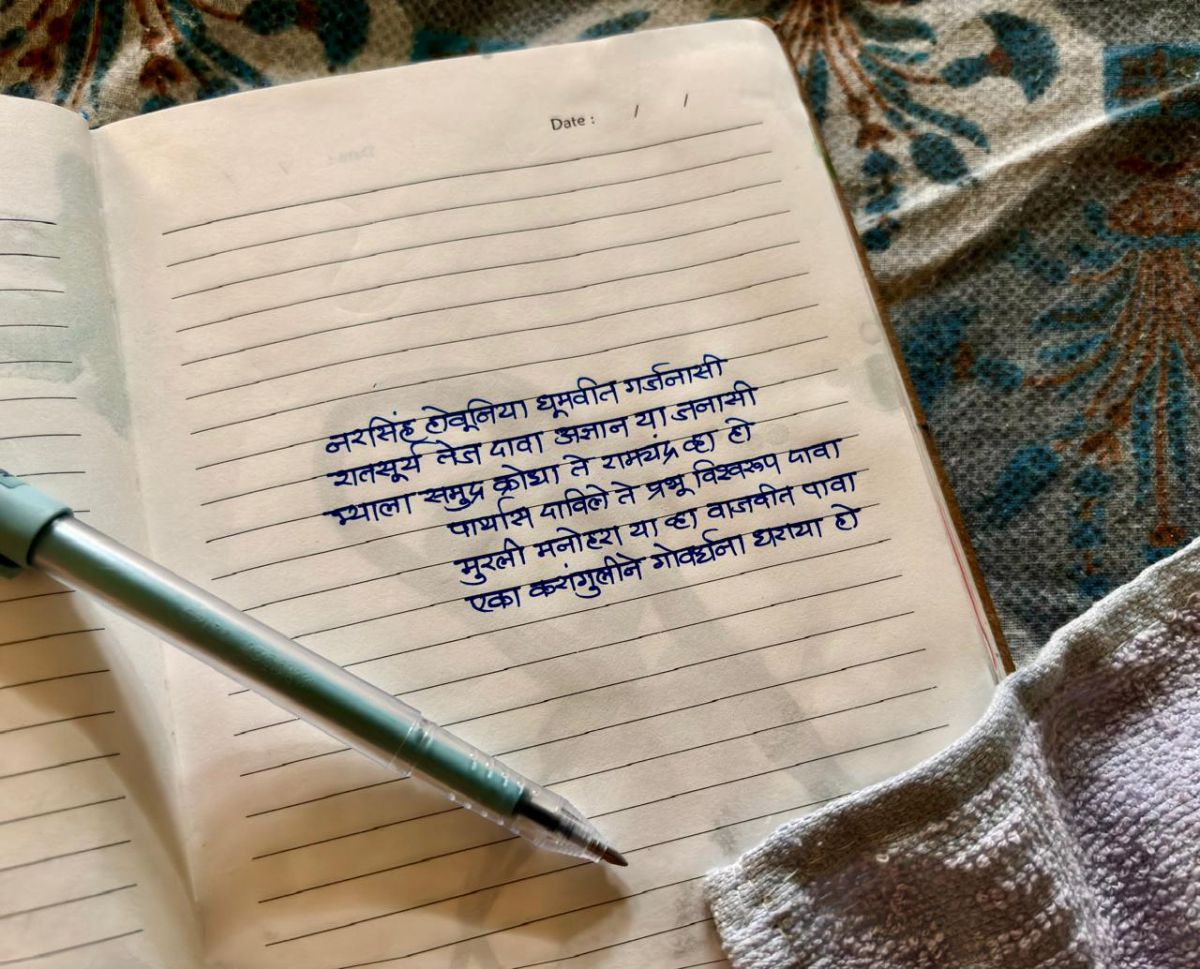 Date : / /
नरसिंह होवूनिया धूमवीत गर्जनासी
शतसूर्य तेज दावा अज्ञान या जनासी
म्याला समुद्र क्रोधा ते रामचंद्र व्हा हो
पार्थास दाविले ते प्रभू विश्वरूप दावा
मुरली मनोहरा या व्हा वाजवीत पावा
एका करांगुलीने गोवर्धना धराया हो